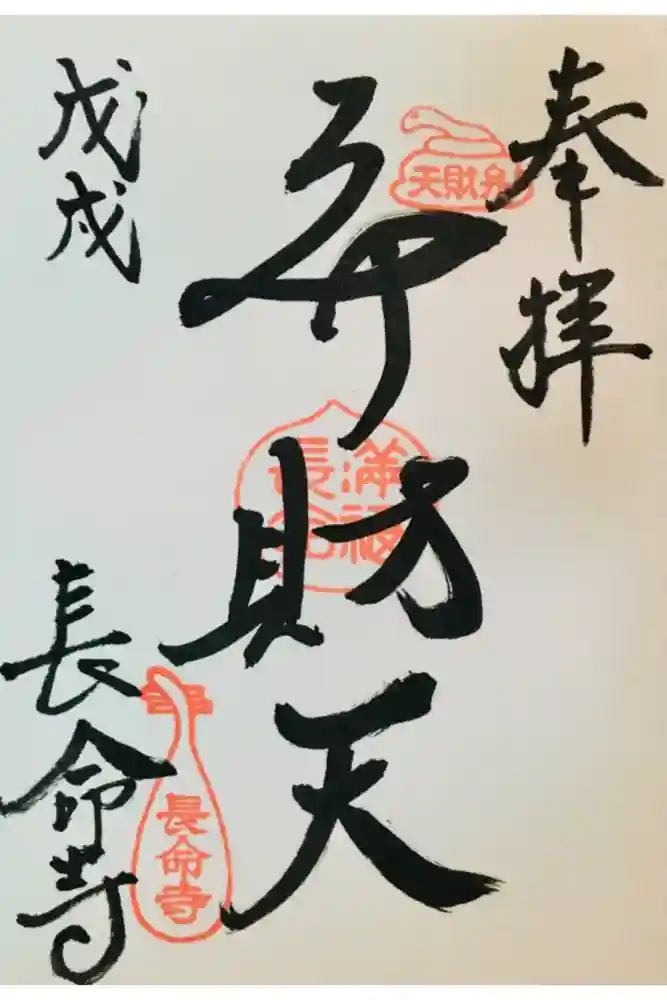 奉拝
弁財天
戊戌
長命寺
天財弁
満福
長命
長命寺